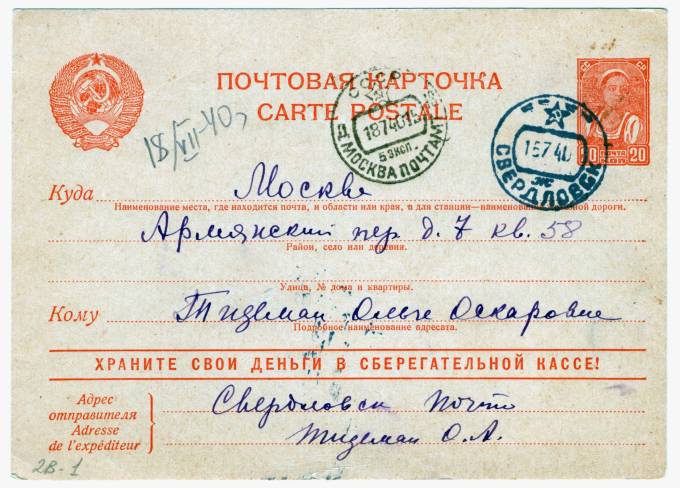 ПОЧТОВАЯ КАРТОЧКА
CARTE POSTALE
18/VII-40 г.
СССР
18740
5 ЭКСП.
МОСКВА ПОЧТАМТ
15740
СВЕРДЛОВСК
20
Куда Москва
Наименование места, где находится почта, и области или края, а для станции—наименование железной дороги.
Армянский пер. д. 7 кв. 58
Район, село или деревня.
Улица, № дома и квартиры.
Кому Тидеман Ольге Оскаровне
Подробное наименование адресата.
ХРАНИТЕ СВОИ ДЕНЬГИ В СБЕРЕГАТЕЛЬНОЙ КАССЕ!
Адрес отправителя
Adresse de l'expéditeur
Свердловск Почта
Тидеман О.А.
2В-1